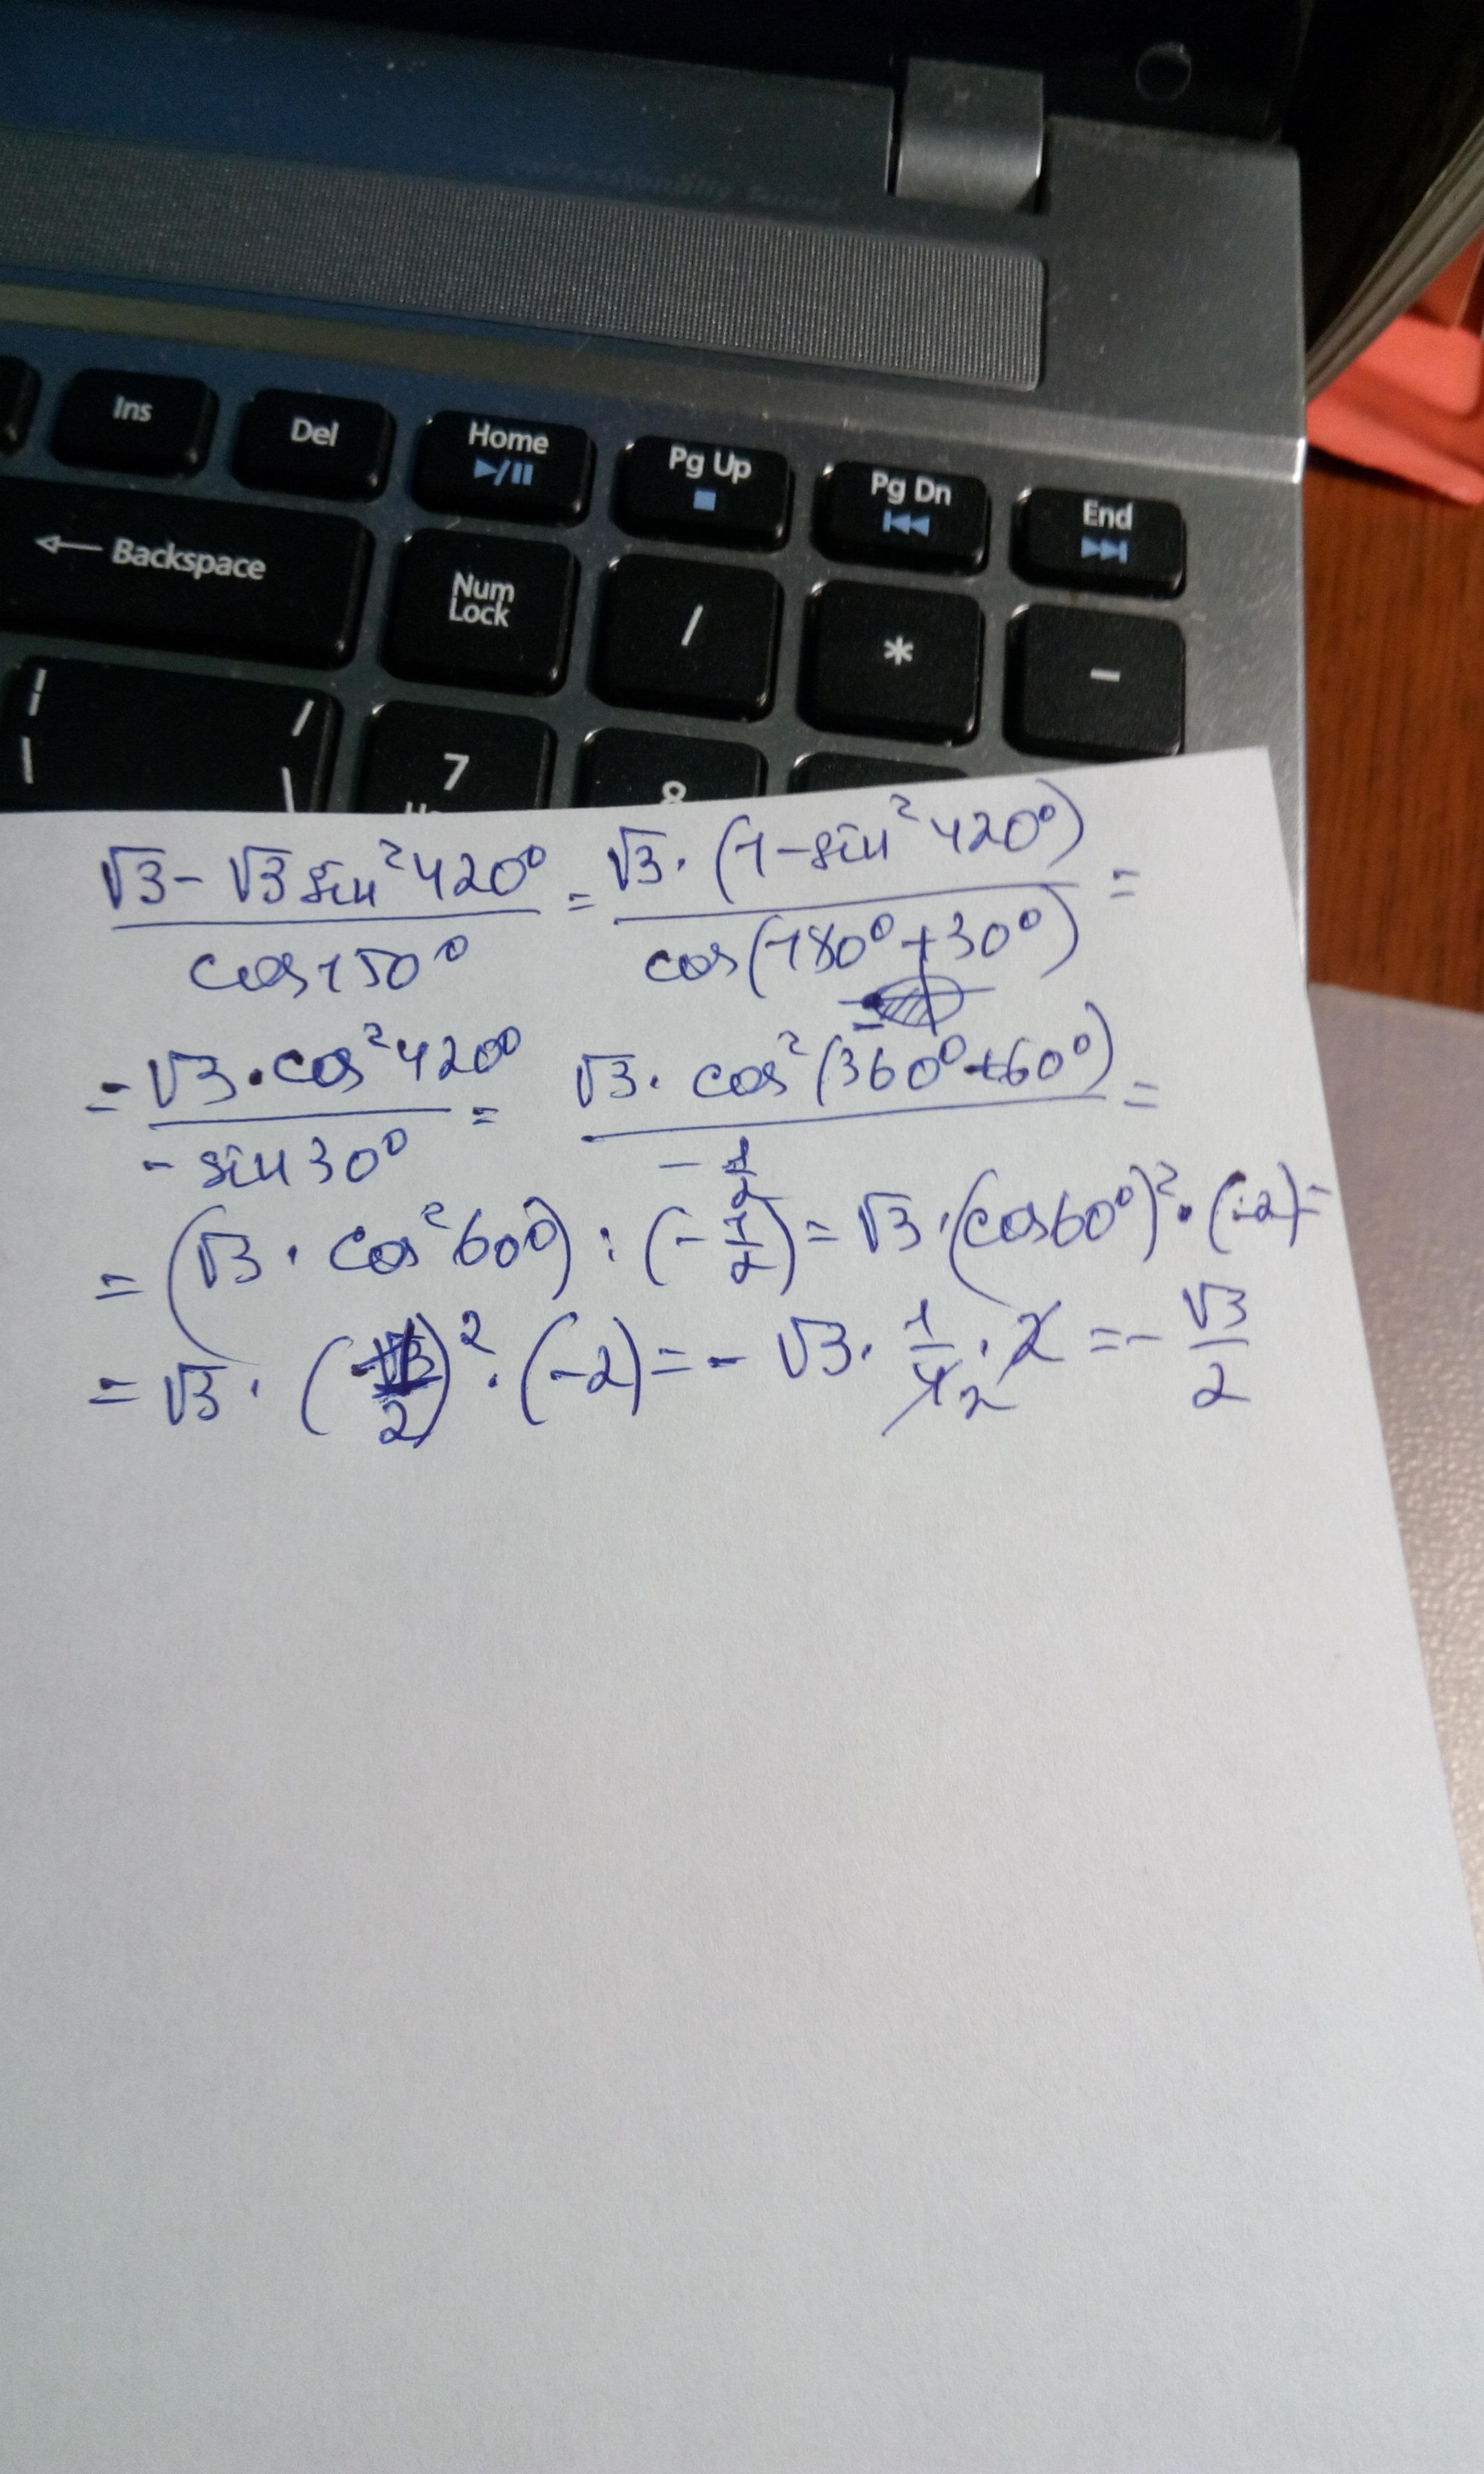 Ins Del Home Pg Up Pg Dn End
← Backspace Num Lock / * -
7 8
√3 - √3 sin²420° / cos150° = √3 · (1 - sin²420°) / cos(180° + 30°) =
= √3 · cos²420° / - sin30° = √3 · cos²(360° + 60°) / - 1/2 =
= (√3 · cos²60°) : (- 1/2) = √3 · (cos60°)² · (-2) =
= √3 · ( /2)² · (-2) = - √3 · 1/4 2 · 2 = - √3/2